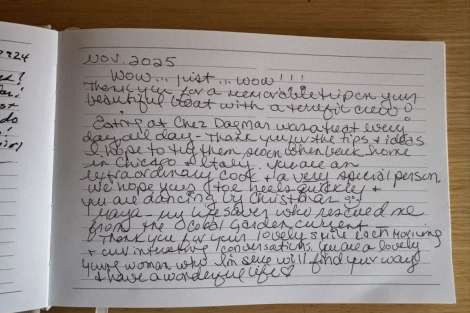 Nov. 2025
Wow... just... wow!!!
Thank you for a memorable trip on your
beautiful boat with a terrific crew!
Eating at Chez Dagmar was a treat every
day, all day - thank you for the tips & ideas
I hope to try them soon when back home
in Chicago & Italy. You are an
extraordinary cook & a very special person
We hope your toe heels quickly &
you are dancing by Christmas
Maya - my lifesaver who rescued me
from the Coral Garden current
Thank you for your lovely smile each morning
& our interesting conversations, you are a lovely
young woman who I'm sure will find your way
& have a wonderful life